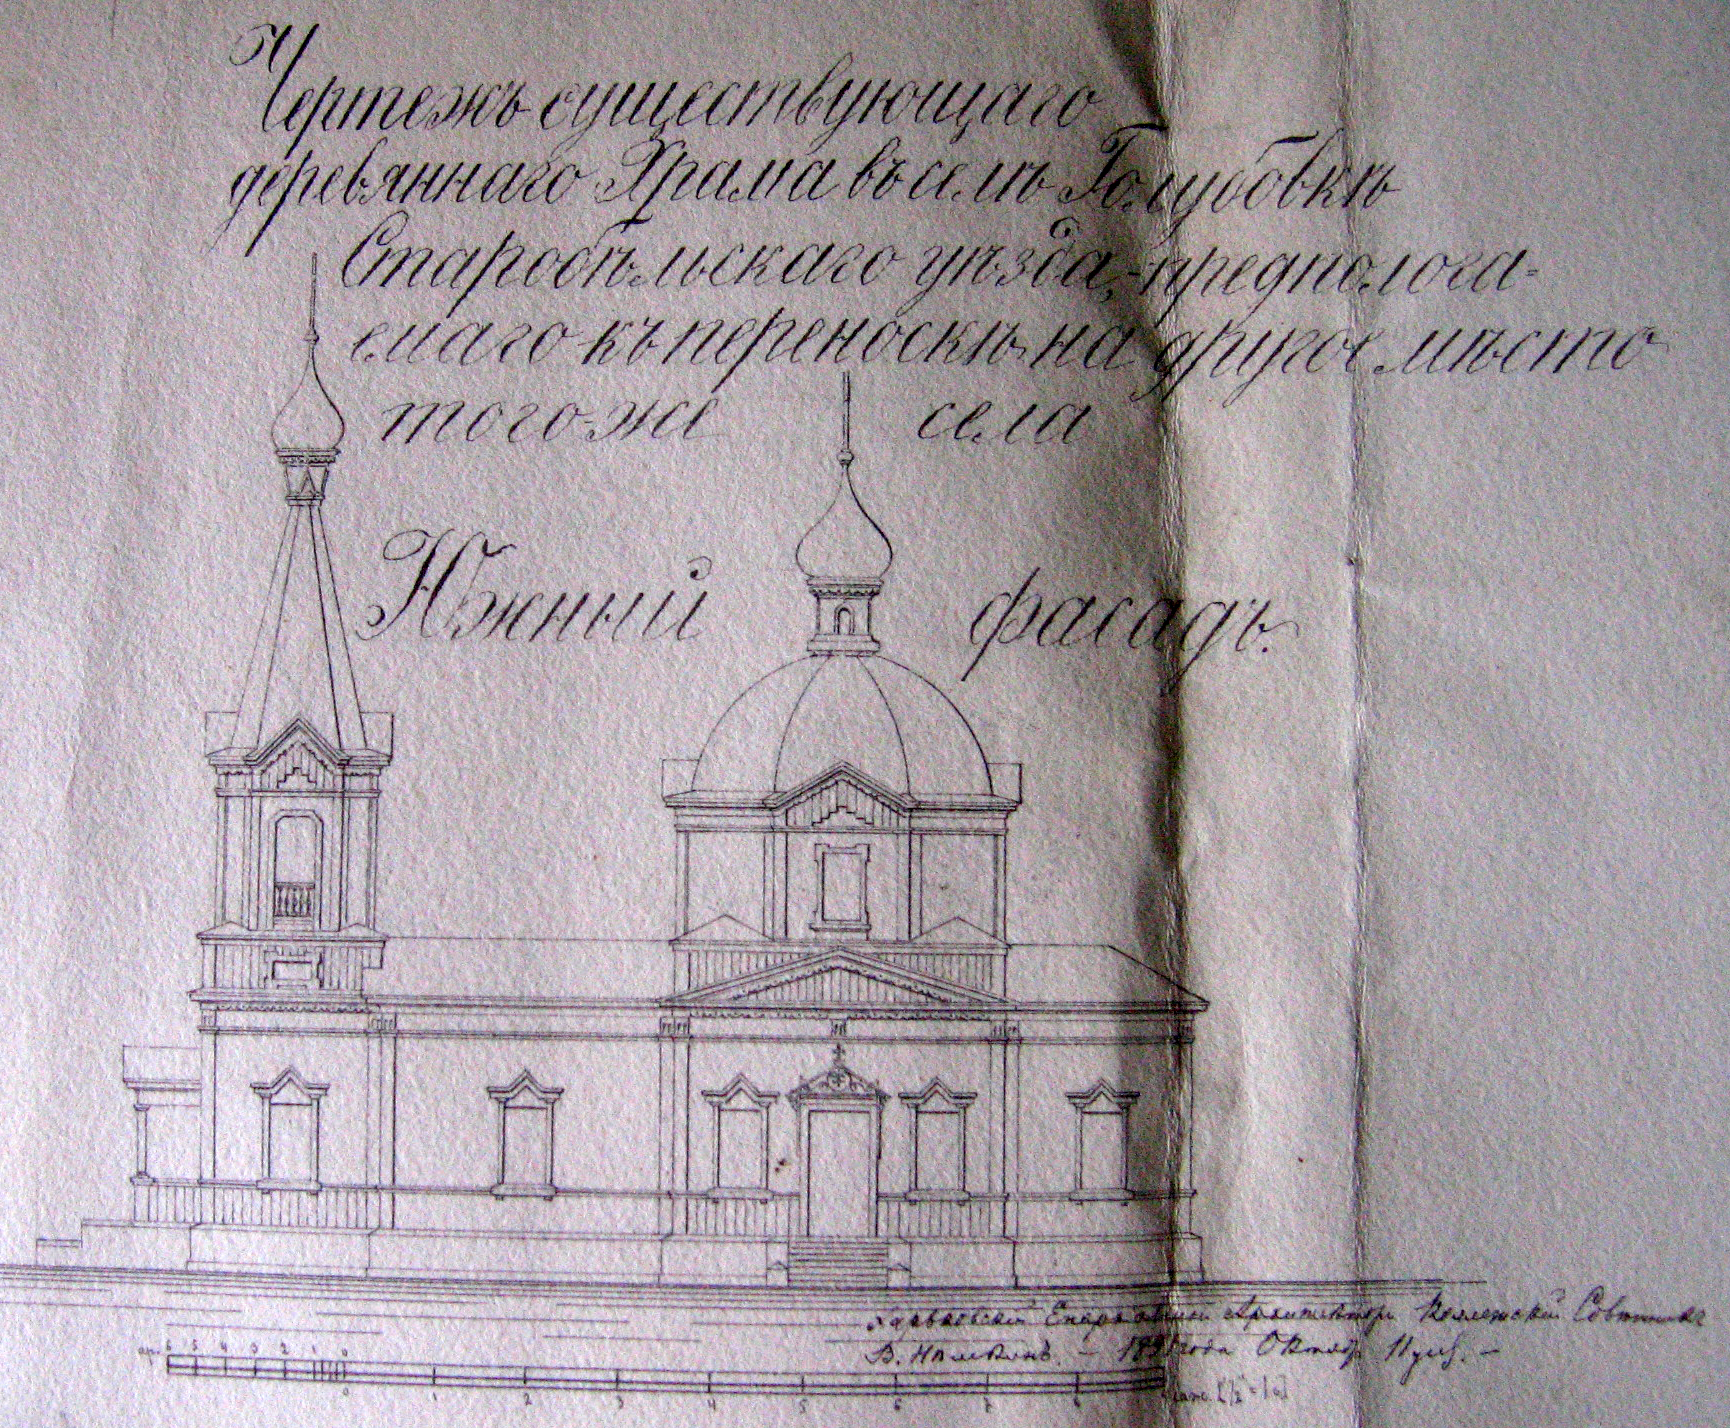 Чертежъ существующаго
деревяннаго Храма въ селѣ Голубовкѣ
Старобѣльскаго уѣзда, предполога-
емаго къ переноскѣ на другое мѣсто
того-же села
Южный фасадъ.
Харьковскій Епархіальный Архитекторъ Коллежскій Совѣтникъ
В. Нѣмкинъ. – года Октября 11 дня. –
ар. 6 5 4 3 2 1 0
0 1 2 3 4 5 6 7 8 саж.